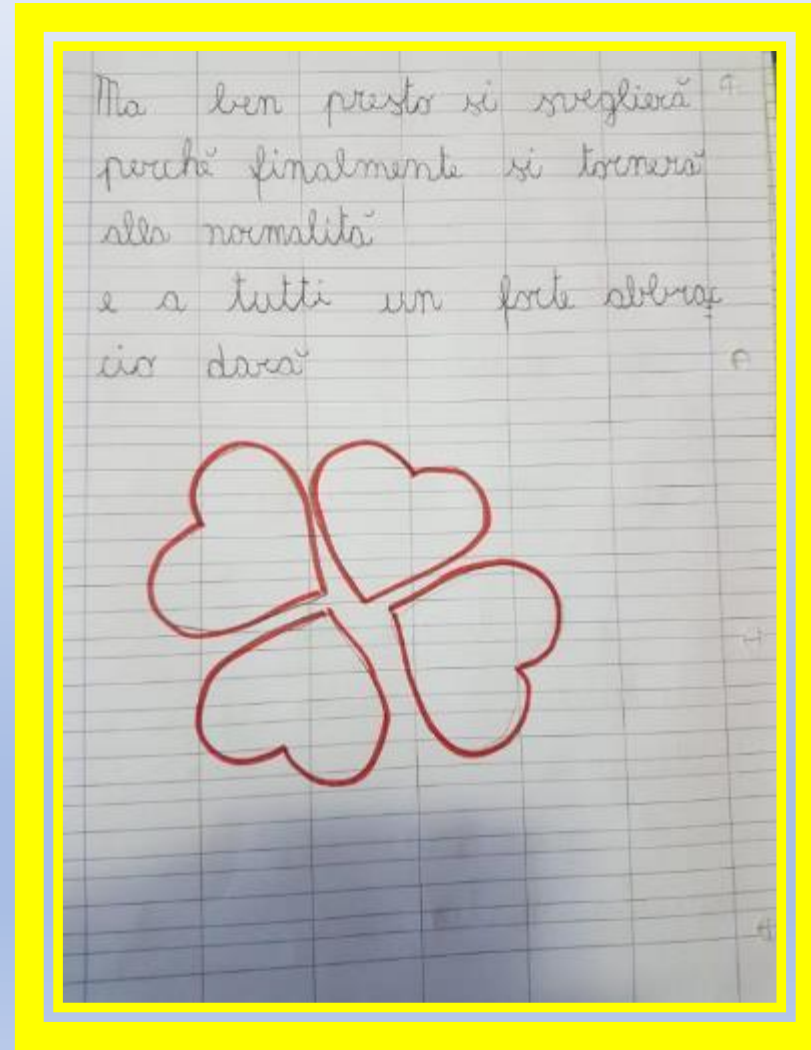 Ma ben presto si sveglierà
perchè finalmente si tornerà
alla normalità
e a tutti un forte abbrac
cio darà